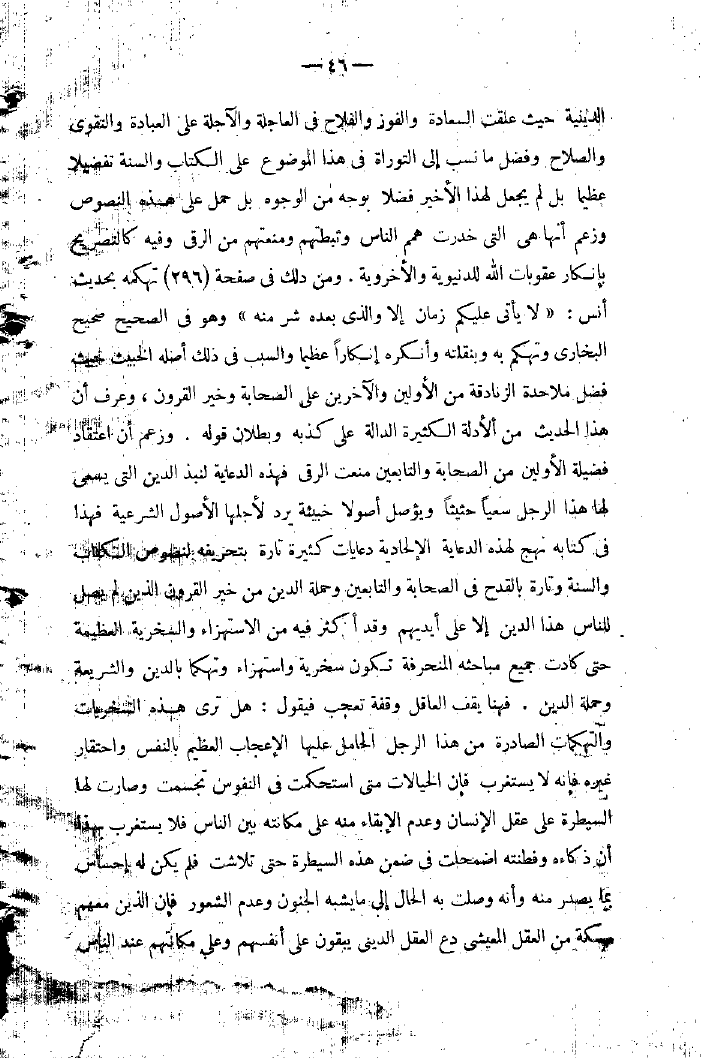 — ٤٦ —
الدينية حيث علقت السعادة والفوز والفلاح فى العاجلة والآجلة على العبادة والتقوى
والصلاح وفضل ما نسب إلى التوراة فى هذا الموضوع على الكتاب والسنة تفضيلا
عظيما بل لم يجعل لهذا الأخير فضلا بوجه من الوجوه بل حمل على هذه النصوص
وزعم أنها هى التى خدرت همم الناس وثبطتهم ومنعتهم من الرقى وفيه كالتصريح
بإنكار عقوبات الله للدنيوية والأخروية . ومن ذلك فى صفحة (٢٩٦) تهكمه بحديث
أنس : « لا يأتى عليكم زمان إلا والذى بعده شر منه » وهو فى الصحيح صحيح
البخارى وتهكم به وبنقلته وأنكره إنكاراً عظيما والسبب فى ذلك أصله الخبيث حيث
فضل ملاحدة الزنادقة من الأولين والآخرين على الصحابة وخير القرون ، وعرف أن
هذا الحديث من الأدلة الكثيرة الدالة على كذبه وبطلان قوله . وزعم أن اعتقاد
فضيلة الأولين من الصحابة والتابعين منعت الرقى فهذه الدعاية لنبذ الدين التى يسعى
لها هذا الرجل سعياً حثيثاً ويؤصل أصولا خبيثة يرد لأجلها الأصول الشرعية فهذا
فى كتابه نهج لهذه الدعاية الإلحادية دعايات كثيرة تارة بتحريفه لنصوص الكتاب
والسنة وتارة بالقدح فى الصحابة والتابعين وحملة الدين من خير القرون الذين لم يصل
للناس هذا الدين إلا على أيديهم وقد أكثر فيه من الاستهزاء والسخرية العظيمة
حتى كادت جميع مباحثه المنحرفة تكون سخرية واستهزاء وتهكما بالدين والشريعة
وحملة الدين . فهنا يقف العاقل وقفة تعجب فيقول : هل ترى هذه السخريات
والتهكمات الصادرة من هذا الرجل الحامل عليها الإعجاب العظيم بالنفس واحتقار
غيره فإنه لا يستغرب فإن الخيالات متى استحكمت فى النفوس تجسمت وصارت لها
السيطرة على عقل الإنسان وعدم الإبقاء منه على مكانته بين الناس فلا يستغرب
أن ذكاءه وفطنته اضمحلت فى ضمن هذه السيطرة حتى تلاشت فلم يكن له إحساس
بما يصدر منه وأنه وصلت به الحال إلى مايشبه الجنون وعدم الشعور فإن الذين معهم
مسكة من العقل المعيشى دع العقل الدينى يبقون على أنفسهم وعلى مكانتهم عند الناس